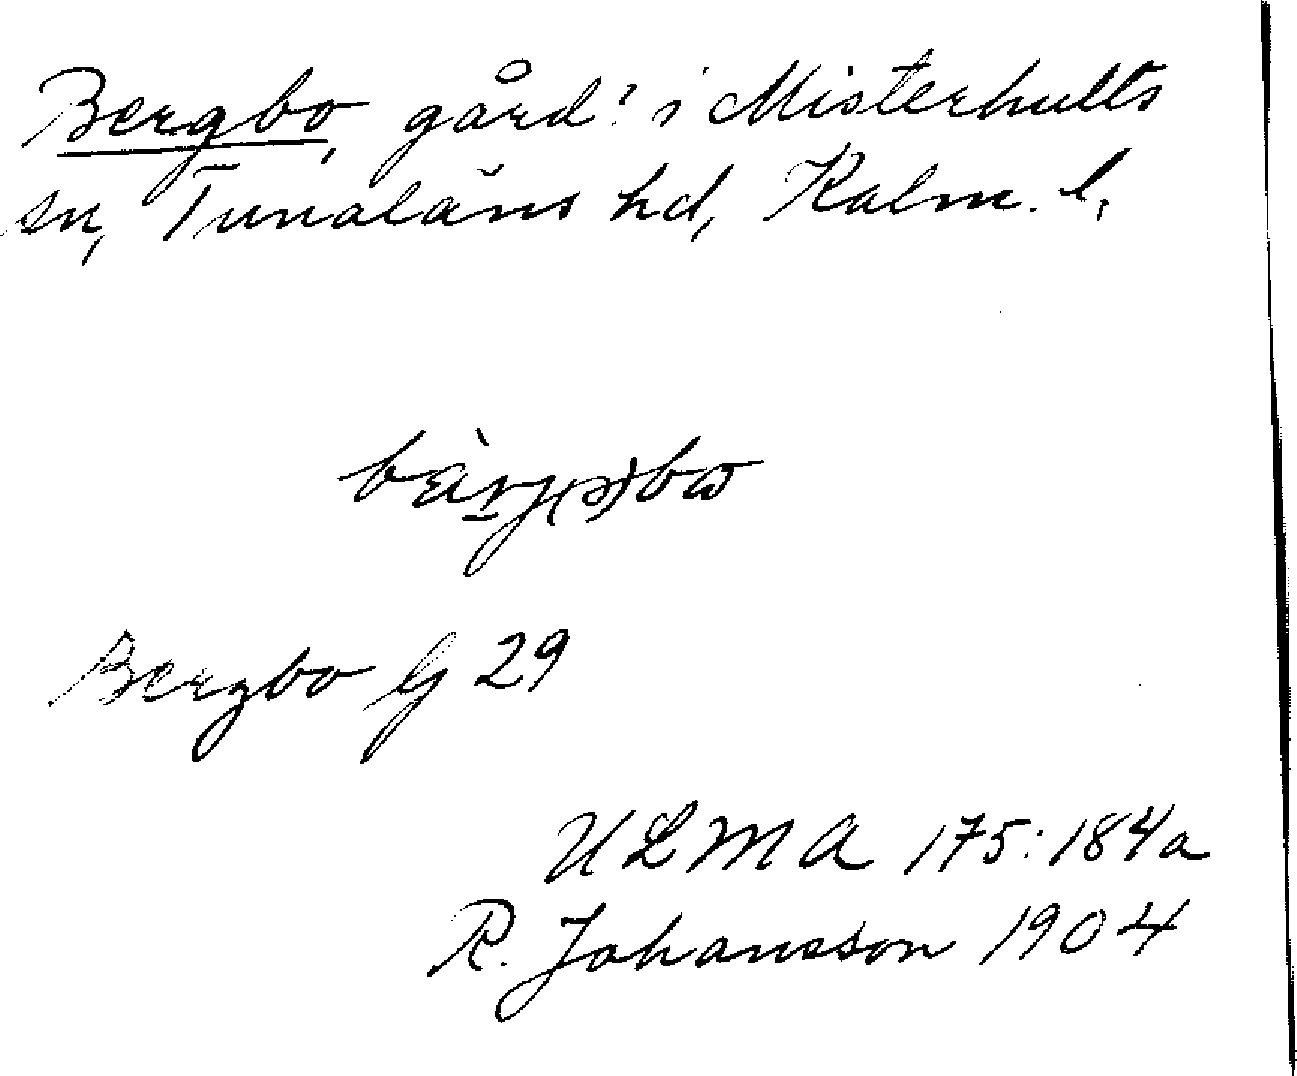 Bergbo, gård! i Misterhults
sn, Tunaläns hd, Kalm. l.
bàrj(ə)bω
Bergbo G 29
ULMA 175:184a
R. Johansson 1904